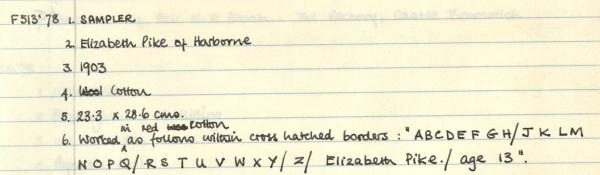 F513'78 1. SAMPLER
2. Elizabeth Pike of Harborne
3. 1903
4. Wool Cotton
5. 23.3 x 28.6 cms.
6. Worked in red cotton as follows within cross hatched borders : "ABCDEFGH/JKLM
NOPQ/RSTUVWXY/Z/ Elizabeth Pike./ age 13".